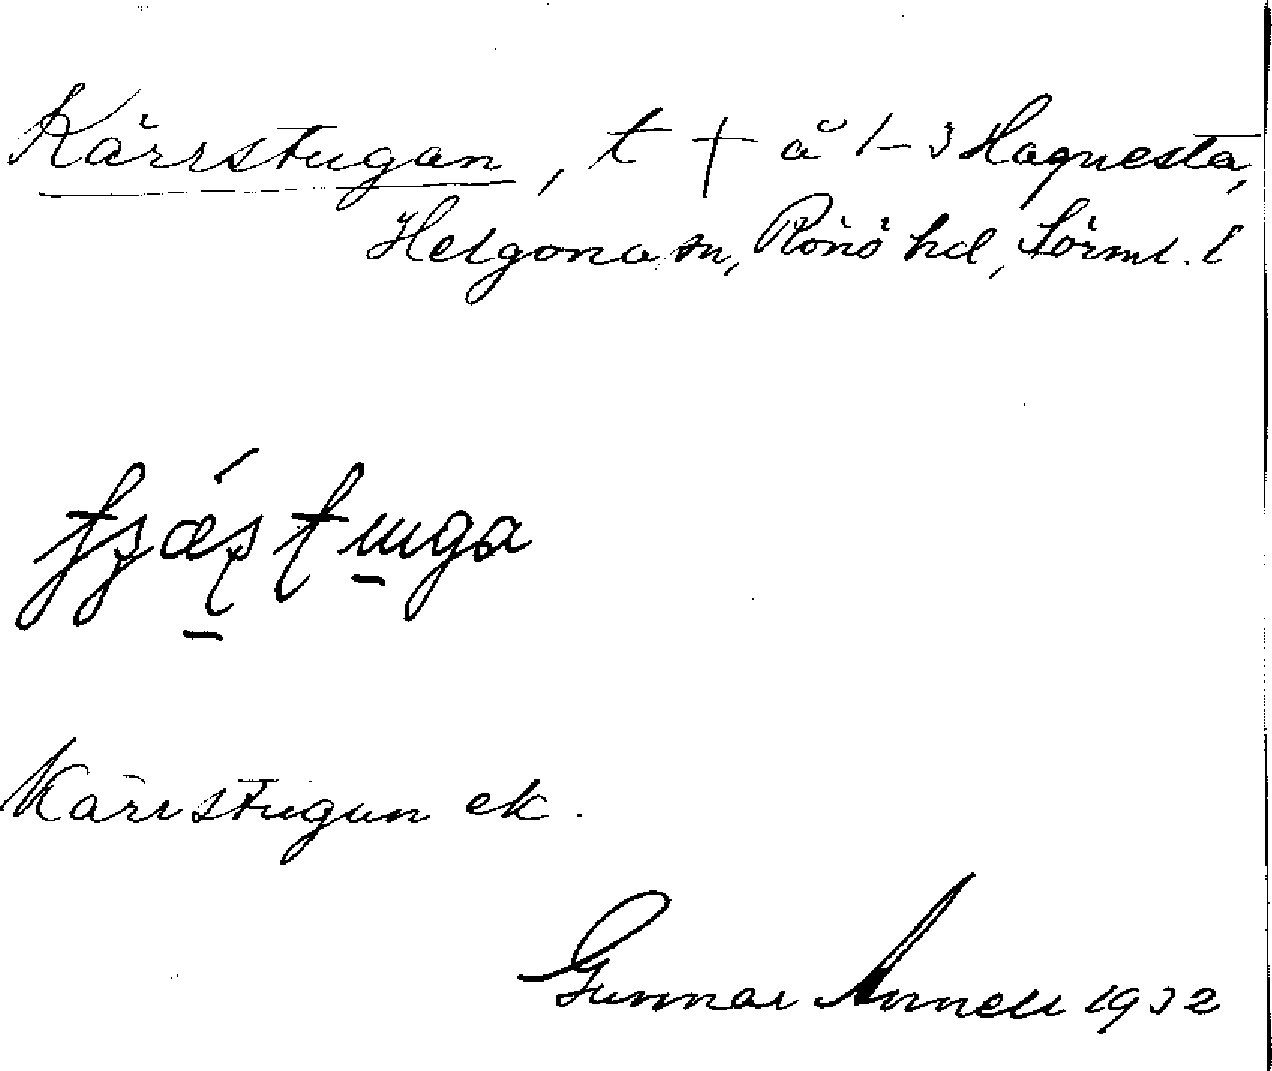 Kärrstugan, t † å 1-3 Hagnesta,
Helgona sn, Rönö hd, Sörml. l
Kärrstugan ek.
Gunnar Annell 1932